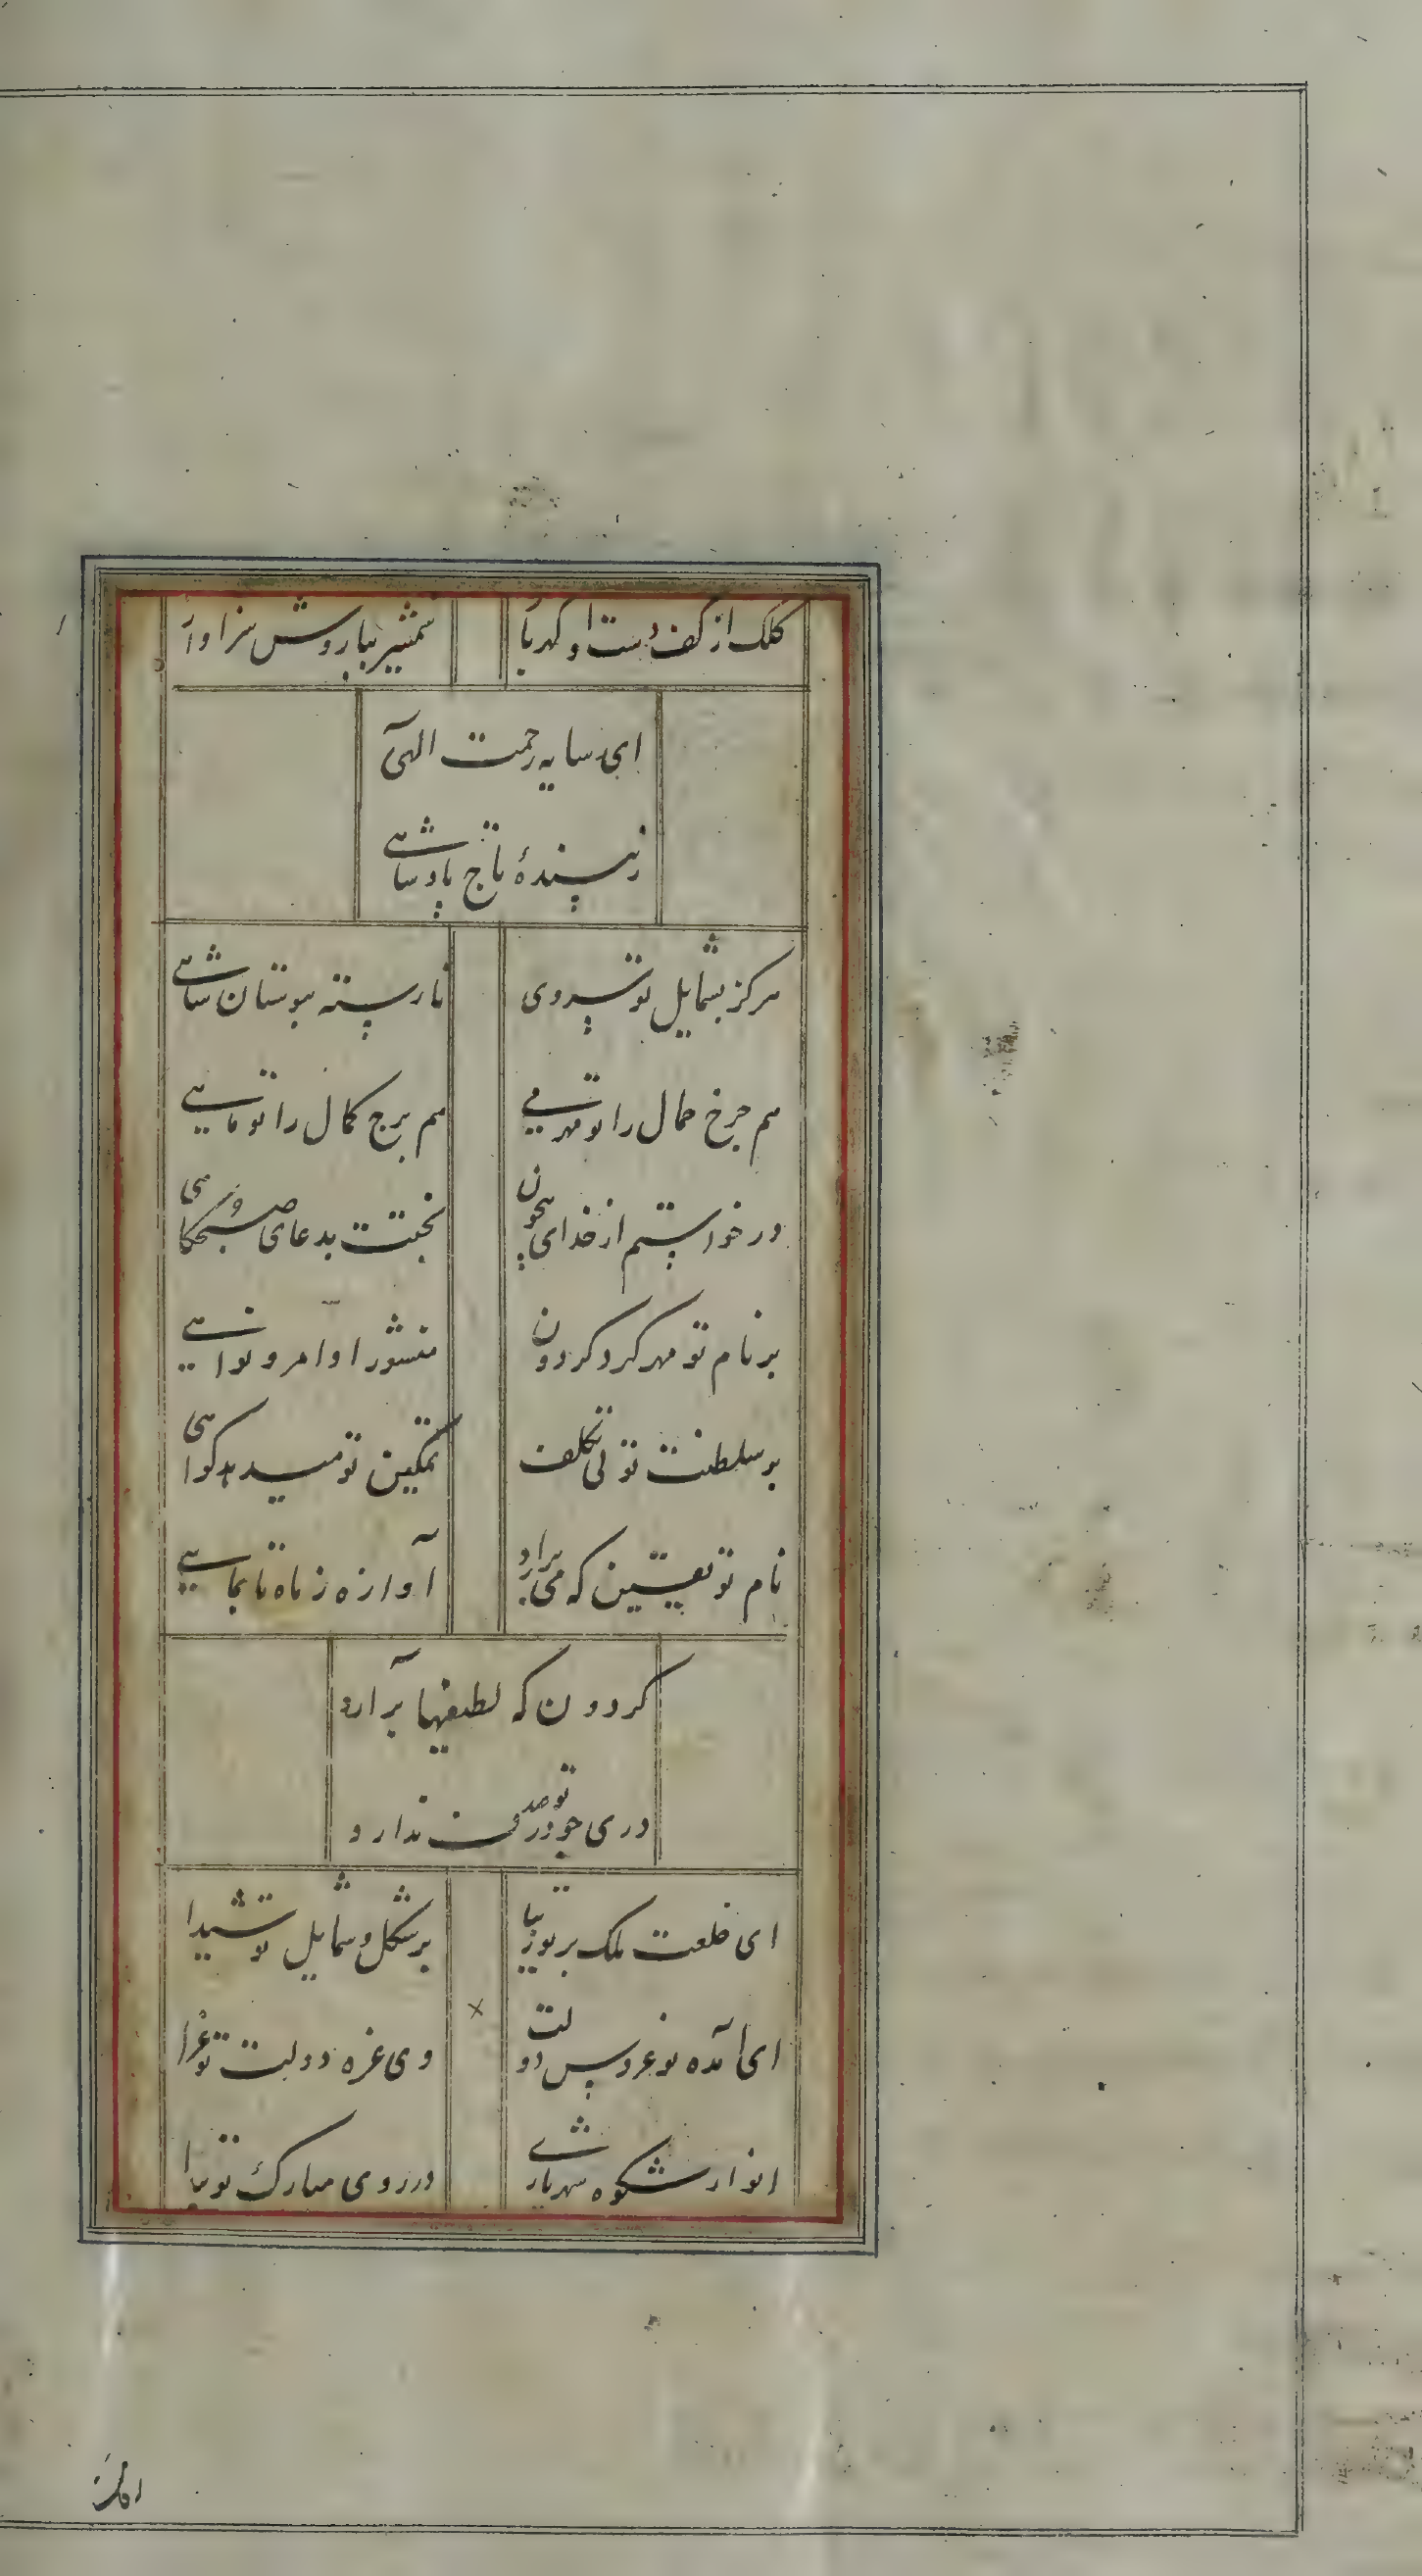 کلک از کف دست او گهربار
شمشیر ببار وشش سزاوار
ای سایه رحمت الهی
زیبندهٔ تاج پادشاهی
هرگز بشمایل تو سروی
نارسته ببوستان شاهی
هم چرخ جمال را تو مهری
هم برج کمال را تو ماهی
درخواستم از خدای بیچون
بختت بدعای صبحگاهی
بر نام تو مهر کرد گردون
منشور اوامر و نواهی
بر سلطنت تو بی تکلف
تمکین تو میدهد گواهی
نام تو یقین که می برارد
آوازه ز ماه تا بماهی
گردون که لطیفها برآرد
دری چو تو در صدف ندارد
ای خلعت ملک بر تو زیبا
بر شکل و شمایل تو شیدا
ای آمده نو عروس دولت
وی غره دولت تو غرا
انوار شکوه شهریاری
در روی مبارک تو پیدا